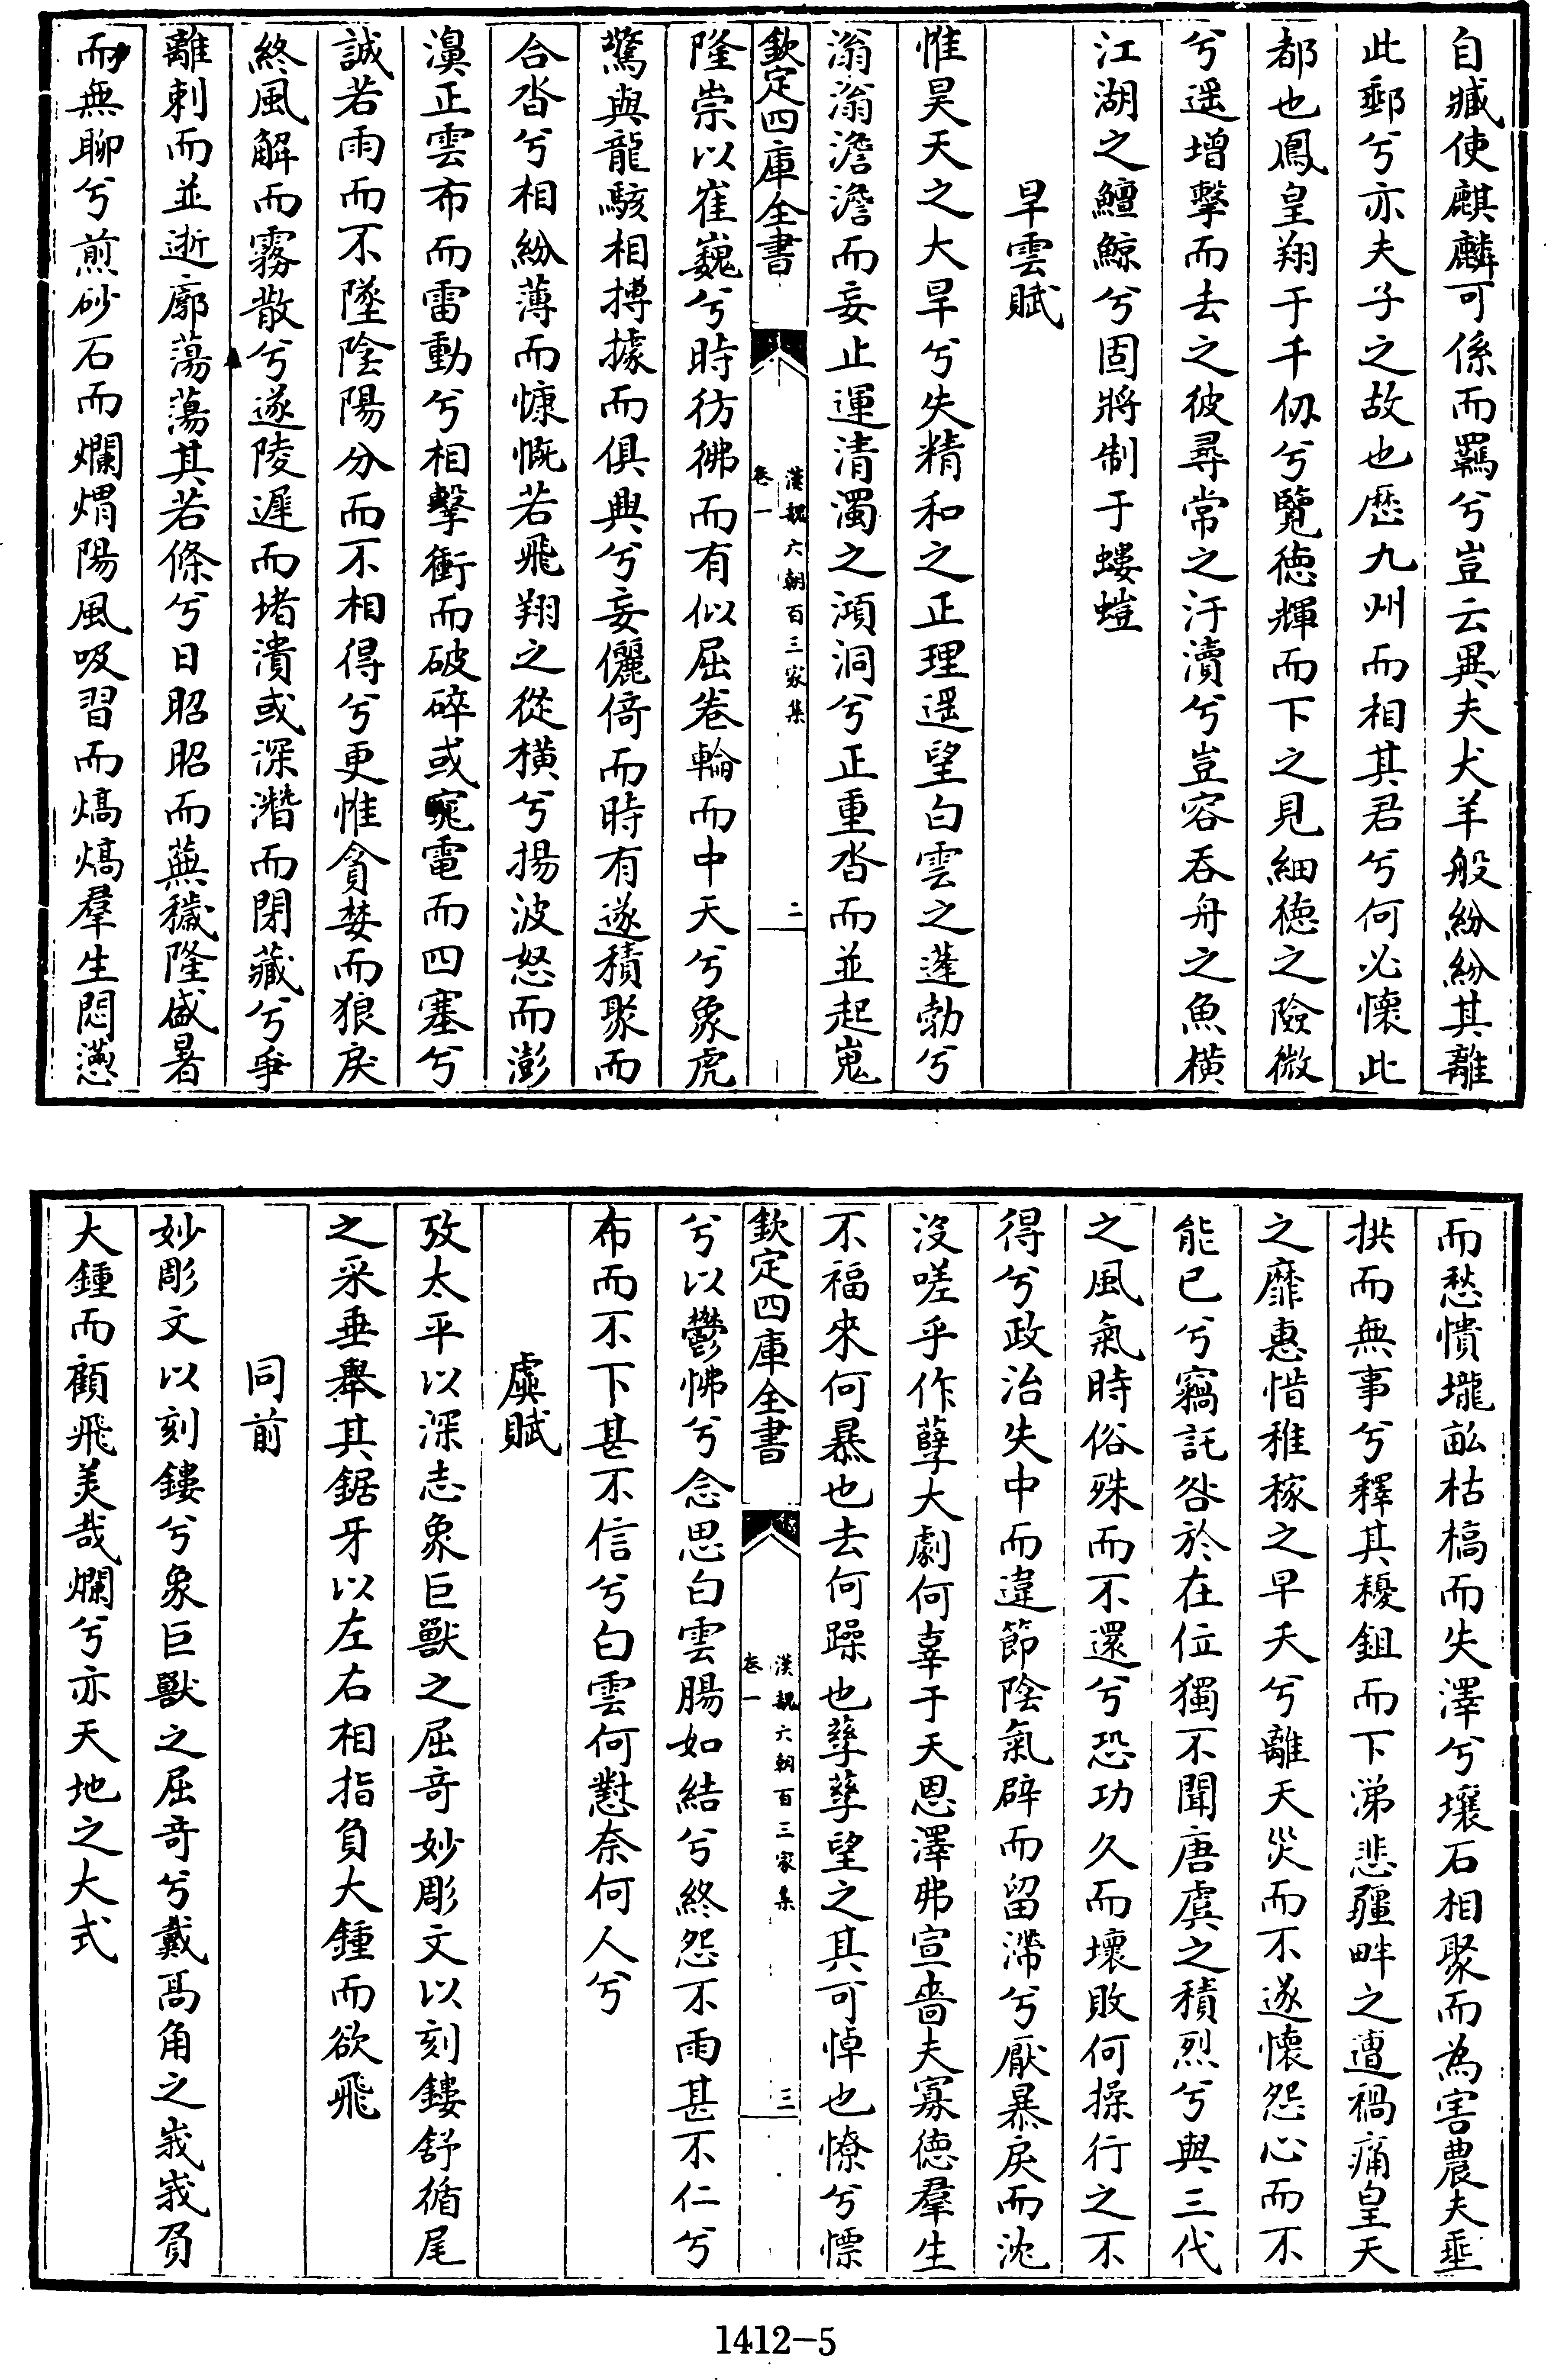 自臧使麒麟可係而羈兮豈云異夫犬羊般紛紛其離
此郵兮亦夫子之故也歷九州而相其君兮何必懷此
都也鳳皇翔于千仞兮覽德輝而下之見細德之險微
兮遥增擊而去之彼尋常之汙瀆兮豈容吞舟之魚橫
江湖之鱣鯨兮固將制于螻螘
旱雲賦
惟昊天之大旱兮失精和之正理遥望白雲之蓬勃兮
滃滃澹澹而妄止運清濁之澒洞兮正重沓而並起嵬
欽定四庫全書
漢魏六朝百三家集
卷一
二
隆崇以崔巍兮時彷彿而有似屈卷輪而中天兮象虎
驚與龍駭相搏據而俱興兮妄儷倚而時有遂積聚而
合沓兮相紛薄而慷慨若飛翔之從橫兮揚波怒而澎
濞正雲布而雷動兮相擊衝而破碎或窕電而四塞兮
誠若雨而不墜陰陽分而不相得兮更惟貪婪而狼戾
終風解而霧散兮遂陵遲而堵潰或深潛而閉藏兮爭
離剌而並逝廓蕩蕩其若條兮日昭昭而蕪穢隆盛暑
而無聊兮煎砂石而爛煟陽風吸習而熇熇羣生悶懣
而愁憒壠畝枯槁而失澤兮壤石相聚而為害農夫垂
拱而無事兮釋其耰鉏而下涕悲疆畔之遭禍痛皇天
之靡惠惜稚稼之早夭兮離天災而不遂懷怨心而不
能已兮竊託咎於在位獨不聞唐虞之積烈兮與三代
之風氣時俗殊而不還兮恐功久而壞敗何操行之不
得兮政治失中而違節陰氣辟而留滯兮厭暴戾而沈
沒嗟乎作孽大劇何辜于天恩澤弗宣嗇夫寡德羣生
不福來何暴也去何躁也孳孳望之其可悼也憭兮慄
欽定四庫全書
漢魏六朝百三家集
卷一
三
兮以鬱怫兮念思白雲腸如結兮終怨不雨甚不仁兮
布而不下甚不信兮白雲何懟奈何人兮
虡賦
攷太平以深志象巨獸之屈奇妙彫文以刻鏤舒循尾
之采垂舉其鋸牙以左右相指負大鍾而欲飛
同前
妙彫文以刻鏤兮象巨獸之屈奇兮戴高角之峩峩負
大鍾而顧飛美哉爛兮亦天地之大式
1412-5